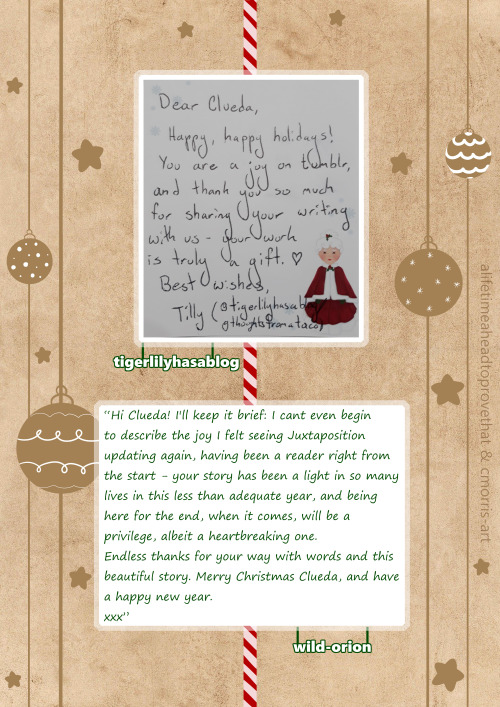 Dear Clueda,
Happy, happy holidays!
You are a joy on tumblr,
and thank you so much
for sharing your writing
with us - your work
is truly a gift. ♡
Best wishes,
Tilly (@tigerlilyhasablog
@thoughtsfromataco)
tigerlilyhasablog
“Hi Clueda! I'll keep it brief: I cant even begin
to describe the joy I felt seeing Juxtaposition
updating again, having been a reader right from
the start - your story has been a light in so many
lives in this less than adequate year, and being
here for the end, when it comes, will be a
privilege, albeit a heartbreaking one.
Endless thanks for your way with words and this
beautiful story. Merry Christmas Clueda, and have
a happy new year.
xxx”
wild-orion
alifetimeaheadtoprovethat & cmorris-art